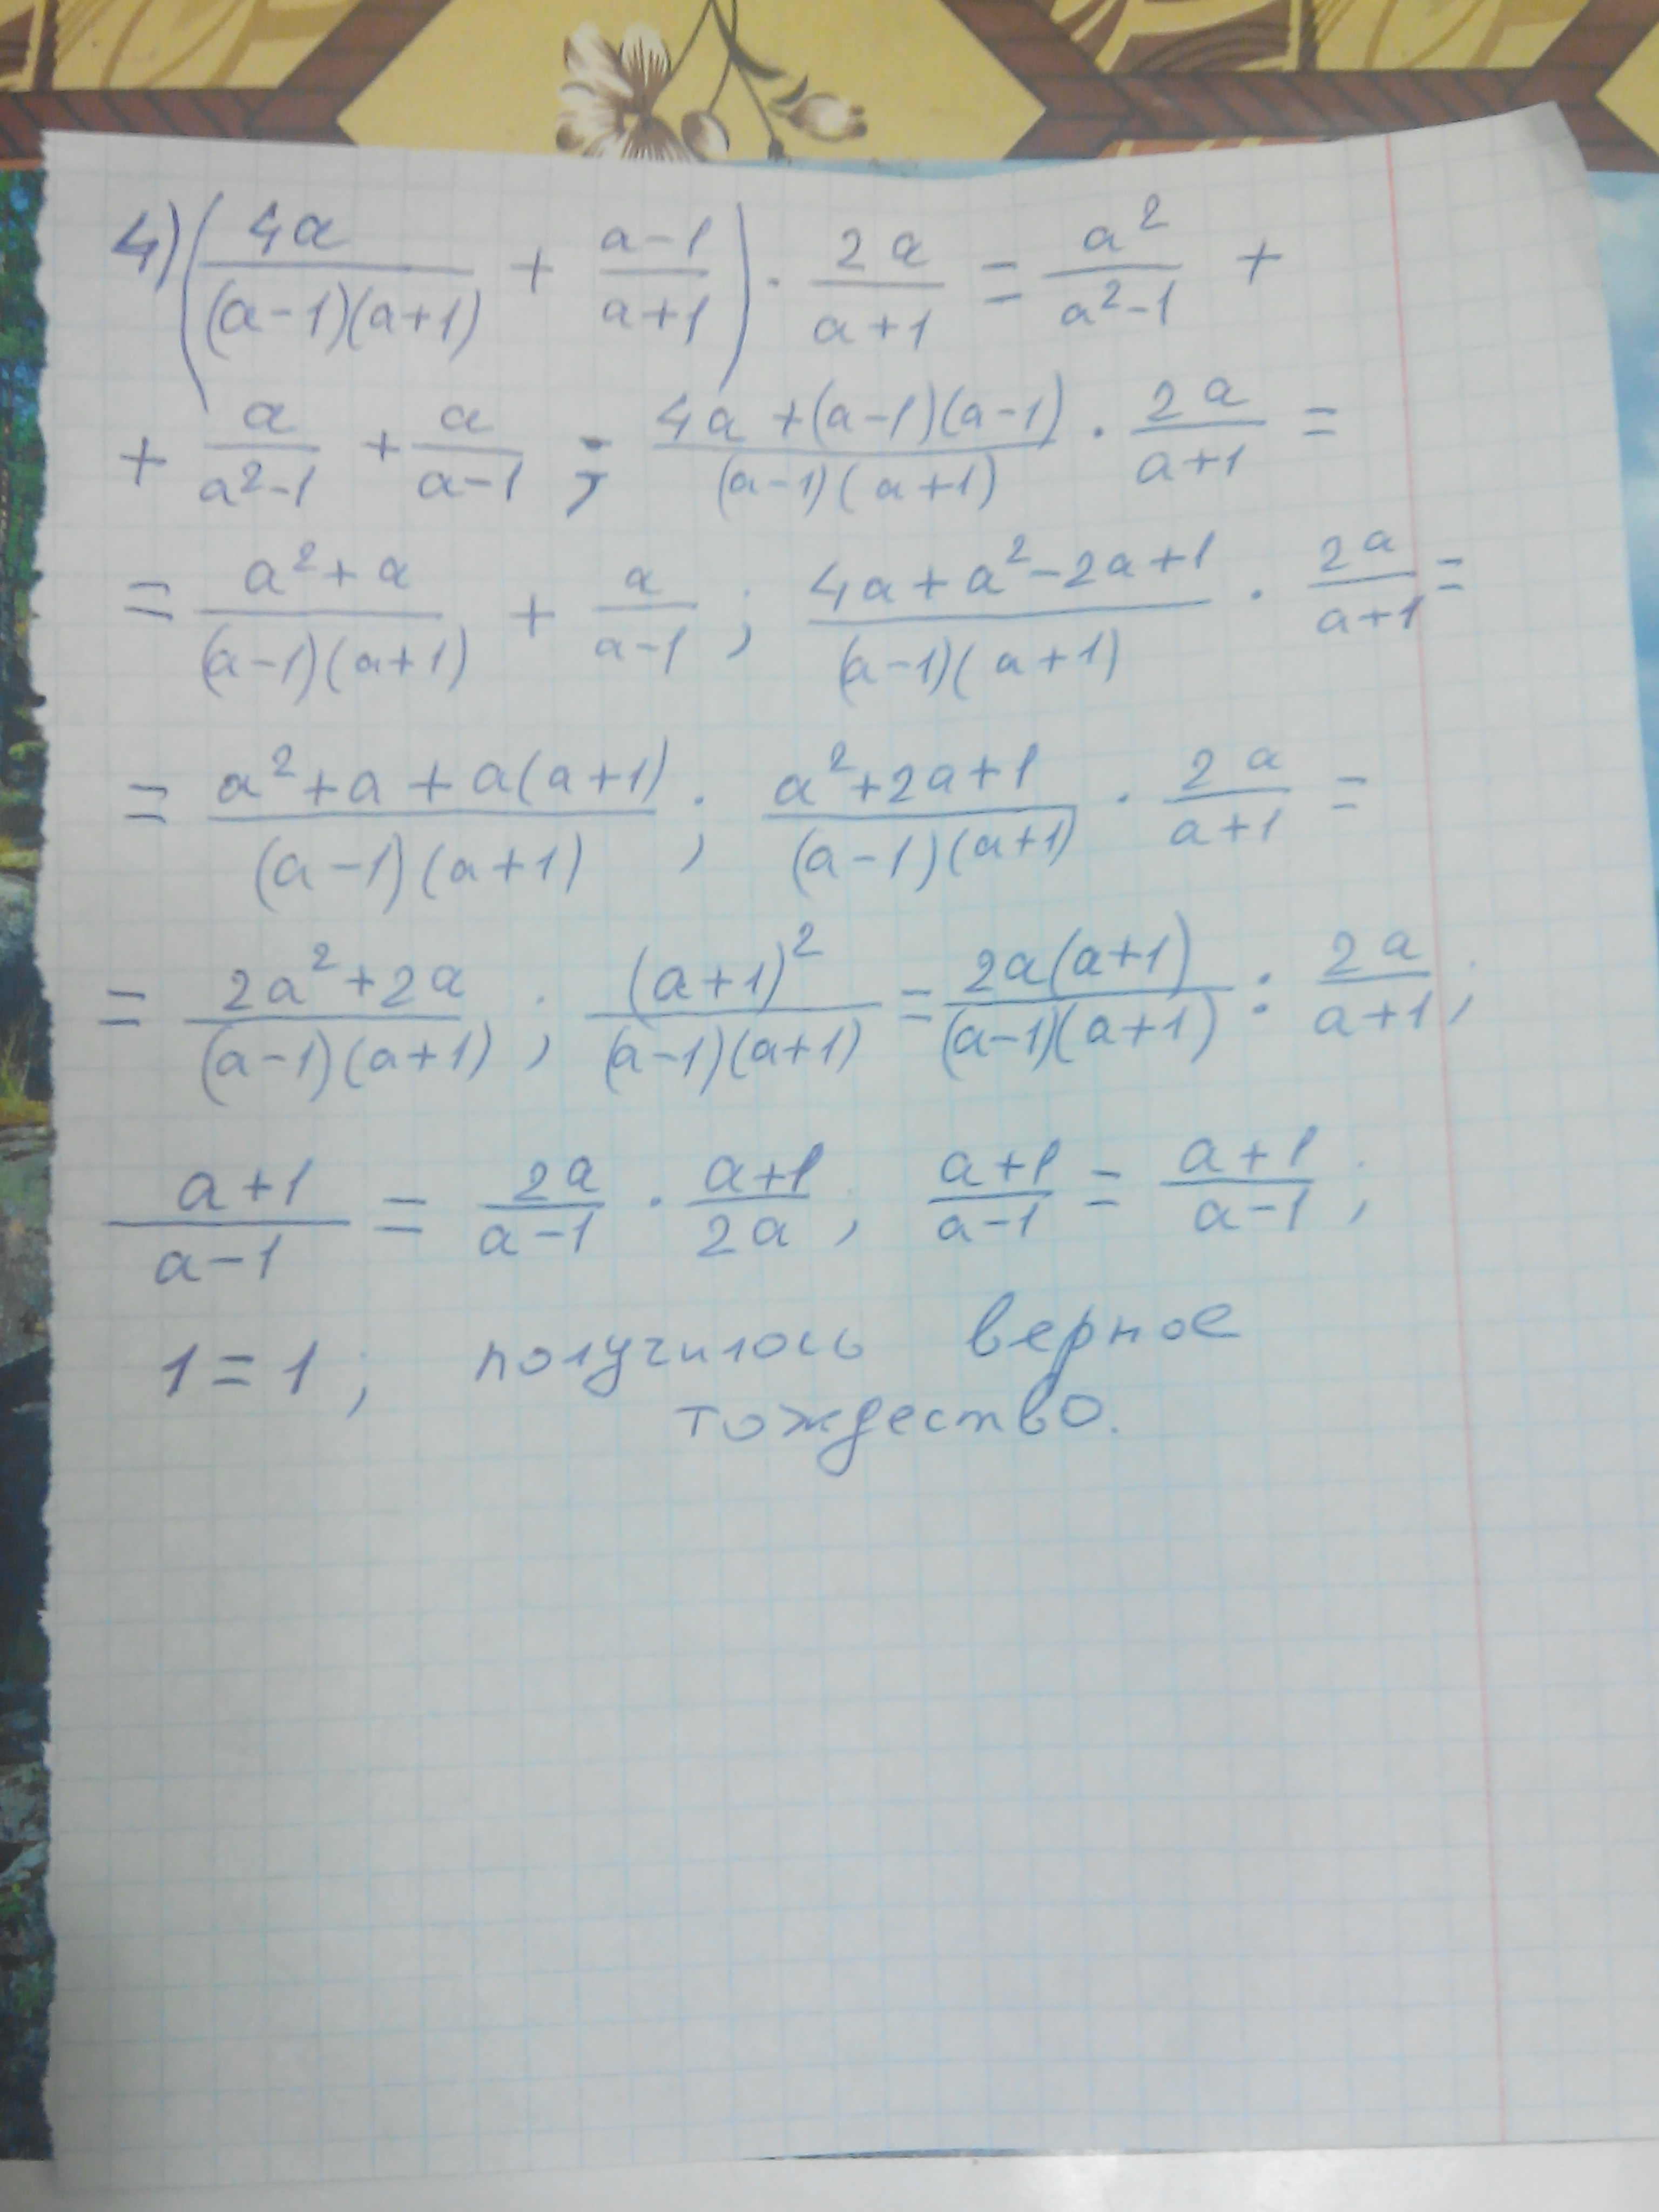 4) (4a/((a-1)(a+1)) + (a-1)/(a+1)) · 2a/(a+1) = a²/(a²-1) +
+ a/(a²-1) + a/(a-1) ; (4a+(a-1)(a-1))/((a-1)(a+1)) · 2a/(a+1) =
= (a²+a)/((a-1)(a+1)) + a/(a-1) ; (4a+a²-2a+1)/((a-1)(a+1)) · 2a/(a+1) =
= (a²+a+a(a+1))/((a-1)(a+1)) ; (a²+2a+1)/((a-1)(a+1)) · 2a/(a+1) =
= (2a²+2a)/((a-1)(a+1)) ; (a+1)²/((a-1)(a+1)) = 2a(a+1)/((a-1)(a+1)) : 2a/(a+1) ;
(a+1)/(a-1) = 2a/(a-1) · (a+1)/2a ; (a+1)/(a-1) = (a+1)/(a-1) ;
1=1 ; получилось верное
тождество.